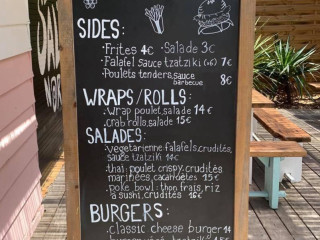 SIDES:
• Frites 4€ • Salade 3€
• Falafel sauce tzatziki (x6) 7€
• Poulets tenders, sauce barbecue 8€
WRAPS/ROLLS:
• wrap poulet, salade 14€
• crab rolls, salade 15€
SALADES:
• vegetarienne: falafels, crudités,
sauce tzatziki 14€
• thai: poulet crispy, crudités
marinées, cacahuètes 15€
• poke bowl: thon frais, riz
à sushi, crudités 16€
BURGERS:
• classic cheese burger 14